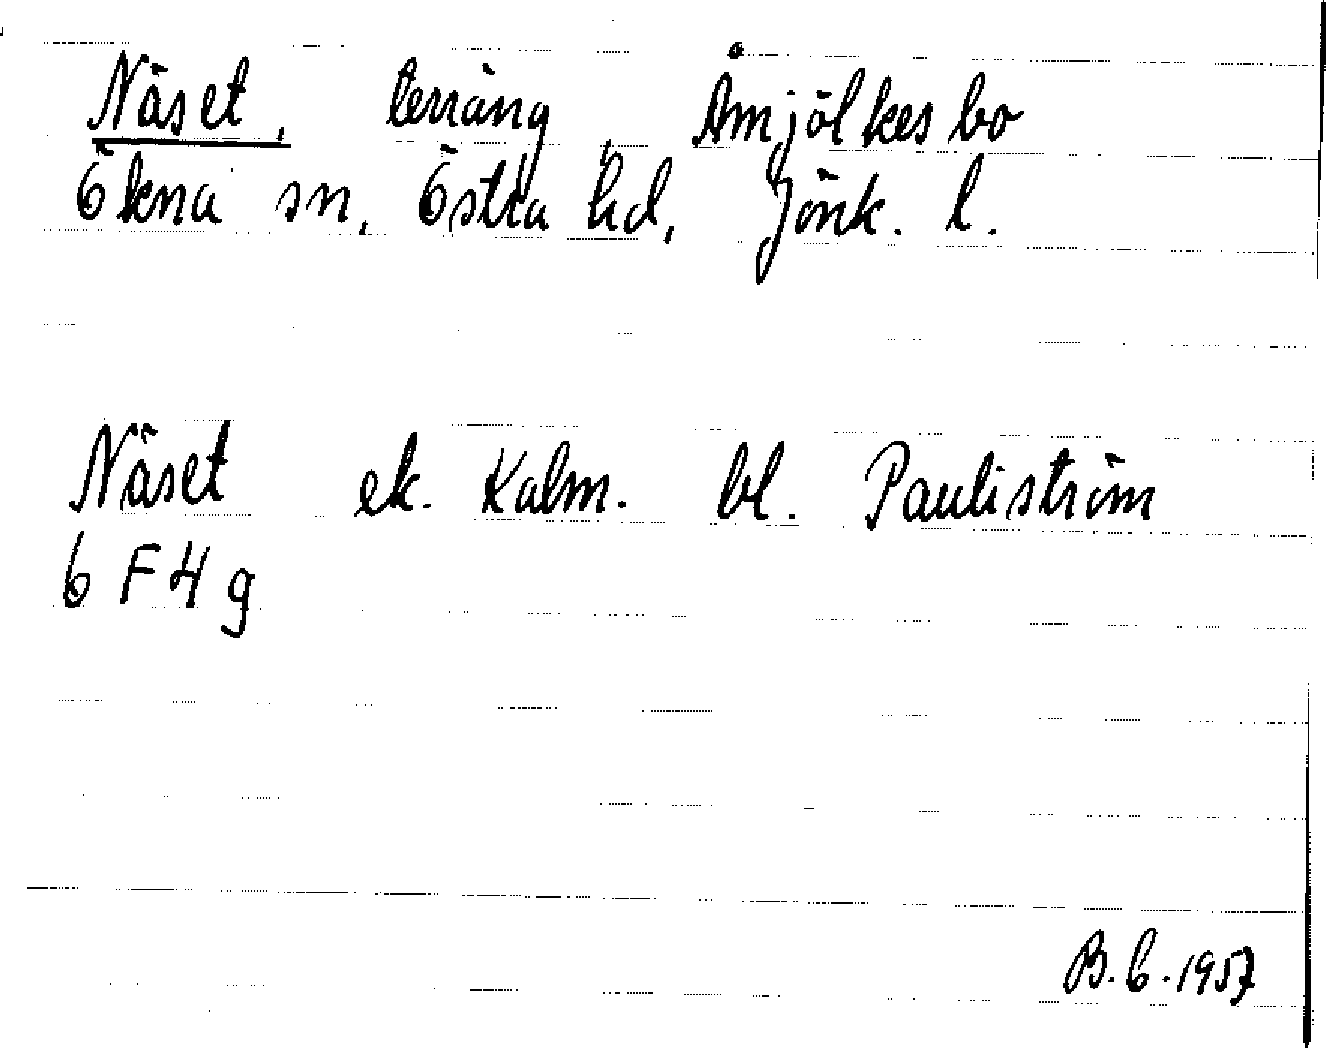 Näset, terräng Åmjölkesbo
Ökna sn, Östra hd, Jönk. l.
Näset ek. Kalm. bl. Pauliström
6 F 4 g
B.E. 1957